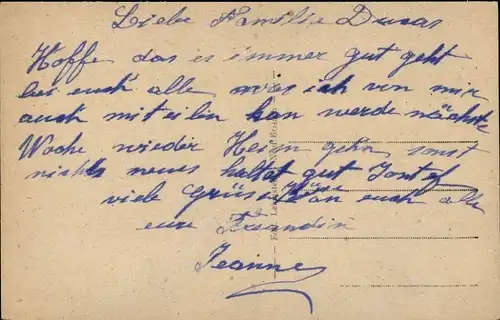 Liebe Familie Ducas
Hoffe das es immer gut geht
bei euch alle was ich von mir
auch mitteilen kan werde nächste
Woche wieder Heim gehn sonst
nichts neues haltet gut Jontef
viele Grüsse an euch alle
eure Freundin
Jeanne